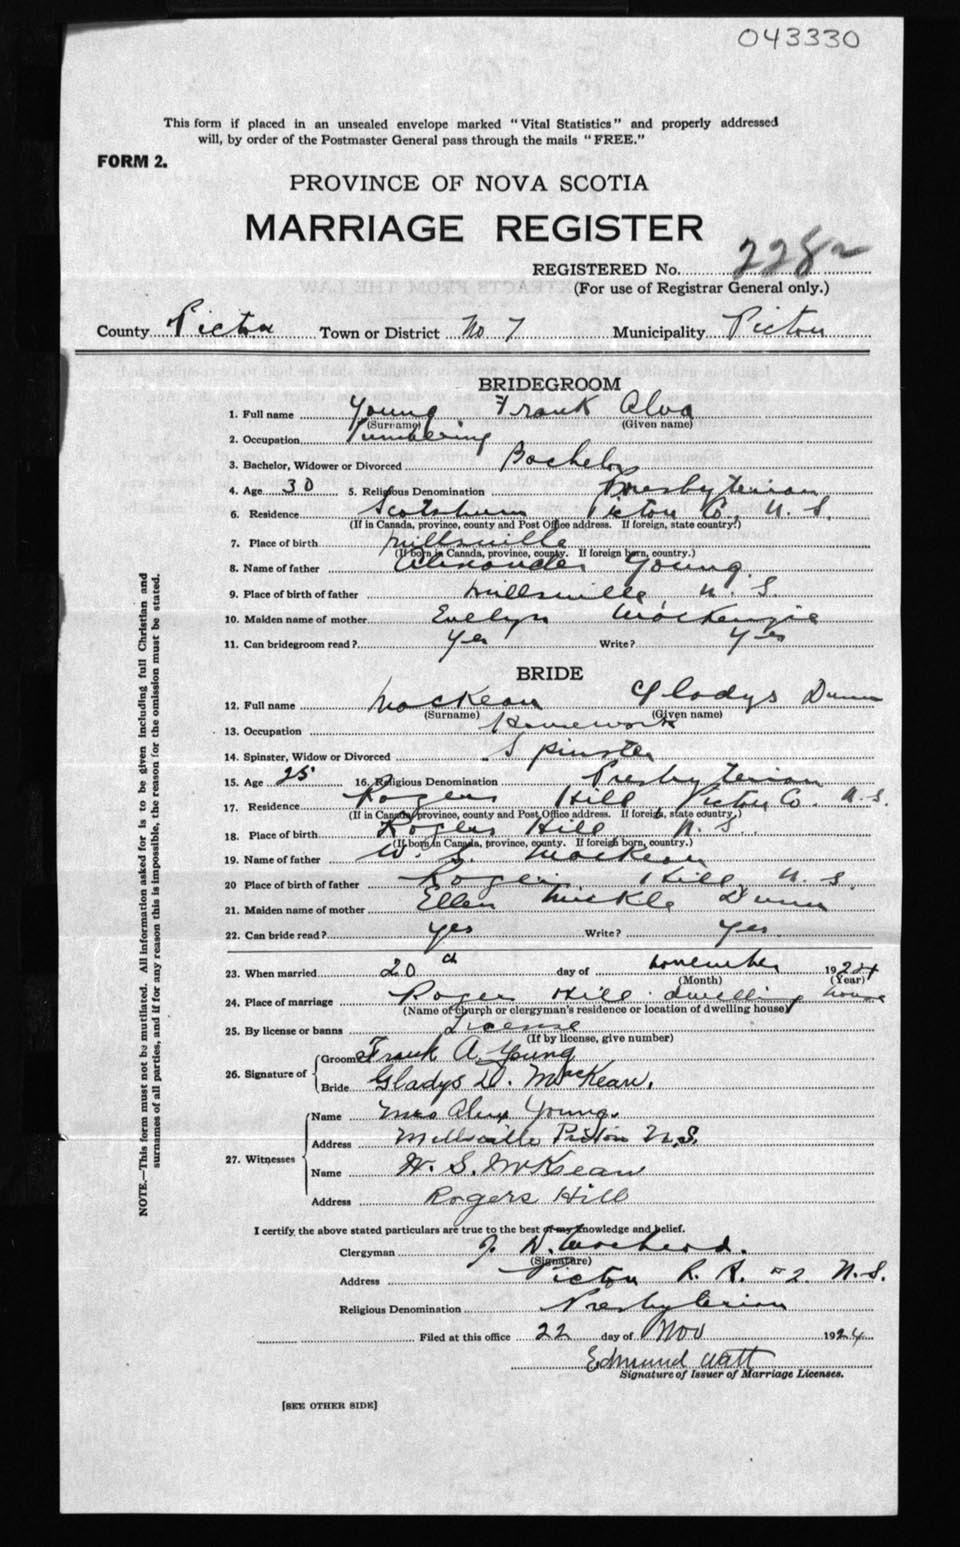 043330
This form if placed in an unsealed envelope marked "Vital Statistics" and properly addressed
will, by order of the Postmaster General pass through the mails "FREE."
FORM 2.
PROVINCE OF NOVA SCOTIA
MARRIAGE REGISTER
REGISTERED No. 2282
(For use of Registrar General only.)
County Pictou Town or District No 7 Municipality Pictou
BRIDEGROOM
1. Full name Young Frank Alva
(Surname) (Given name)
2. Occupation Lumbering
3. Bachelor, Widower or Divorced Bachelor
4. Age 30 5. Religious Denomination Presbyterian
6. Residence Scotsburn Pictou Co., N. S.
(If in Canada, province, county and Post Office address. If foreign, state country.)
7. Place of birth Millsville
(If born in Canada, province, county. If foreign born, country.)
8. Name of father Alexander Young
9. Place of birth of father Millsville, N. S.
10. Maiden name of mother Evelyn MacKenzie
11. Can bridegroom read? Yes Write? Yes
BRIDE
12. Full name MacKean Gladys Dunn
(Surname) (Given name)
13. Occupation Housework
14. Spinster, Widow or Divorced Spinster
15. Age 25 16. Religious Denomination Presbyterian
17. Residence Rogers Hill Pictou Co. N. S.
(If in Canada, province, county and Post Office address. If foreign, state country.)
18. Place of birth Rogers Hill N. S.
(If born in Canada, province, county. If foreign born, country.)
19. Name of father W. S. MacKean
20 Place of birth of father Rogers Hill, N. S.
21. Maiden name of mother Ellen Mickle Dunn
22. Can bride read? Yes Write? Yes
23. When married 20th day of November 1924
(Month) (Year)
24. Place of marriage Roger Hill dwelling house
(Name of church or clergyman's residence or location of dwelling house)
25. By license or banns License
(If by license, give number)
26. Signature of Groom Frank A. Young
Bride Gladys D. MacKean.
27. Witnesses Name Mrs Alex Young.
Address Millsville Pictou N.S.
Name W. S. McKean
Address Rogers Hill
I certify the above stated particulars are true to the best of my knowledge and belief.
Clergyman J. D.
(Signature)
Address Pictou R. R. #2 N.S.
Religious Denomination Presbyterian
Filed at this office 22 day of Nov 1924
Edmund Watt
Signature of Issuer of Marriage Licenses.
[SEE OTHER SIDE]
NOTE.—This form must not be mutilated. All information asked for is to be given including full Christian and
surnames of all parties, and if for any reason this is impossible, the reason for the omission must be stated.